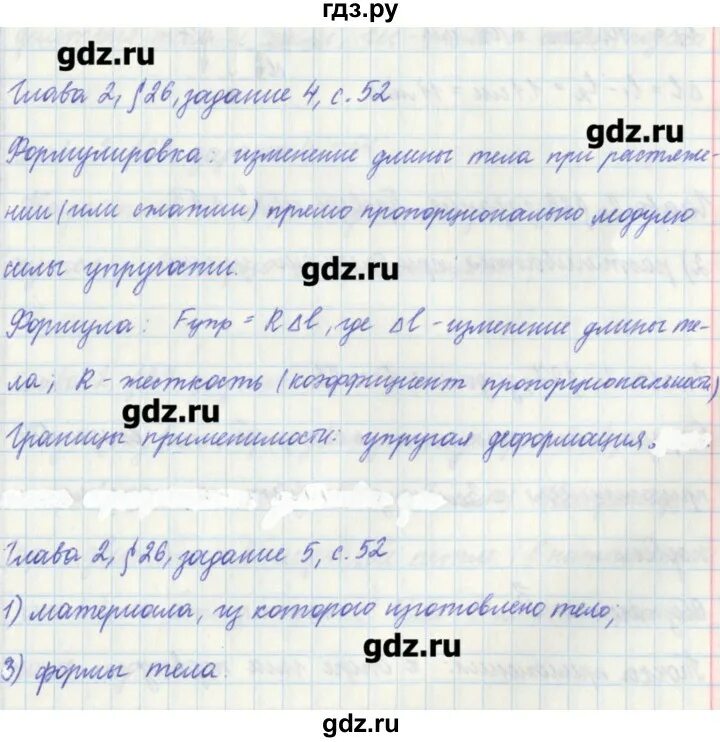 гдз.ру
gdz.ru
Глава 2, § 26, задание 4, с. 52
gdz.ru
Формулировка: изменение длины тела при растяже-
нии (или сжатии) прямо пропорционально модулю
силы упругости.
gdz.ru
Формула: Fупр = RΔl, где Δl - изменение длины те-
ла; R - жесткость (коэффициент пропорциональности)
gdz.ru
Границы применимости: упругая деформация.
Глава 2, § 26, задание 5, с. 52
1) материала, из которого изготовлено тело,
gdz.ru
3) формы тела.
gdz.ru